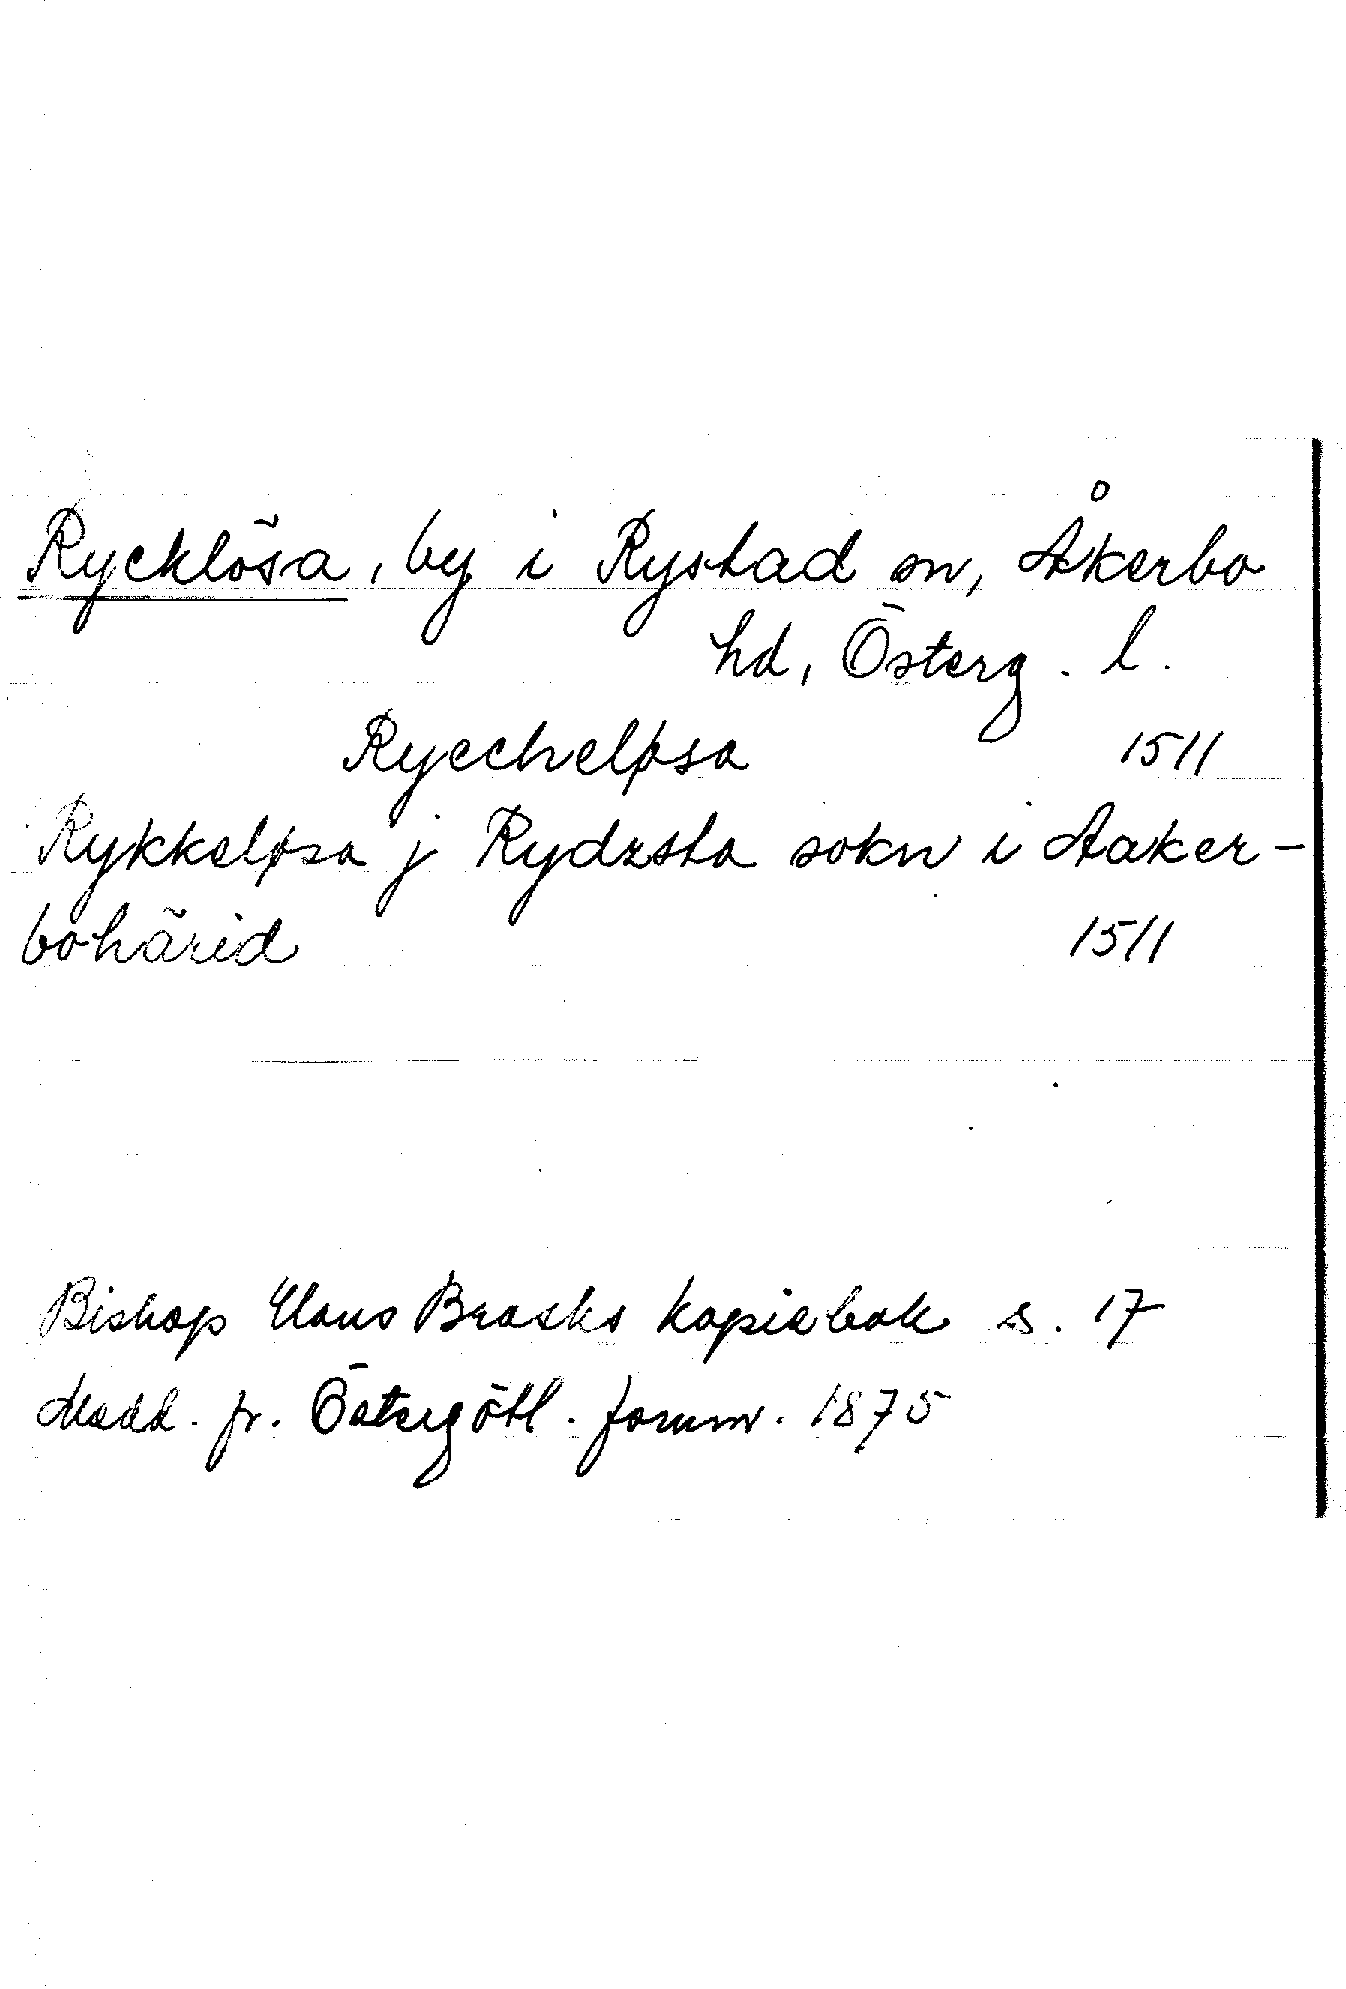 Rycklösa, by i Rystad sn, Åkerbo
hd, Österg. l.
Ryccheløsa 1511
Rykkeløsa j Rydzsta sokn i Aaker-
bohärid 1511
Biskop Hans Brasks kopiebok s. 17
Medd. fr. Östergötl. fornm. 1875